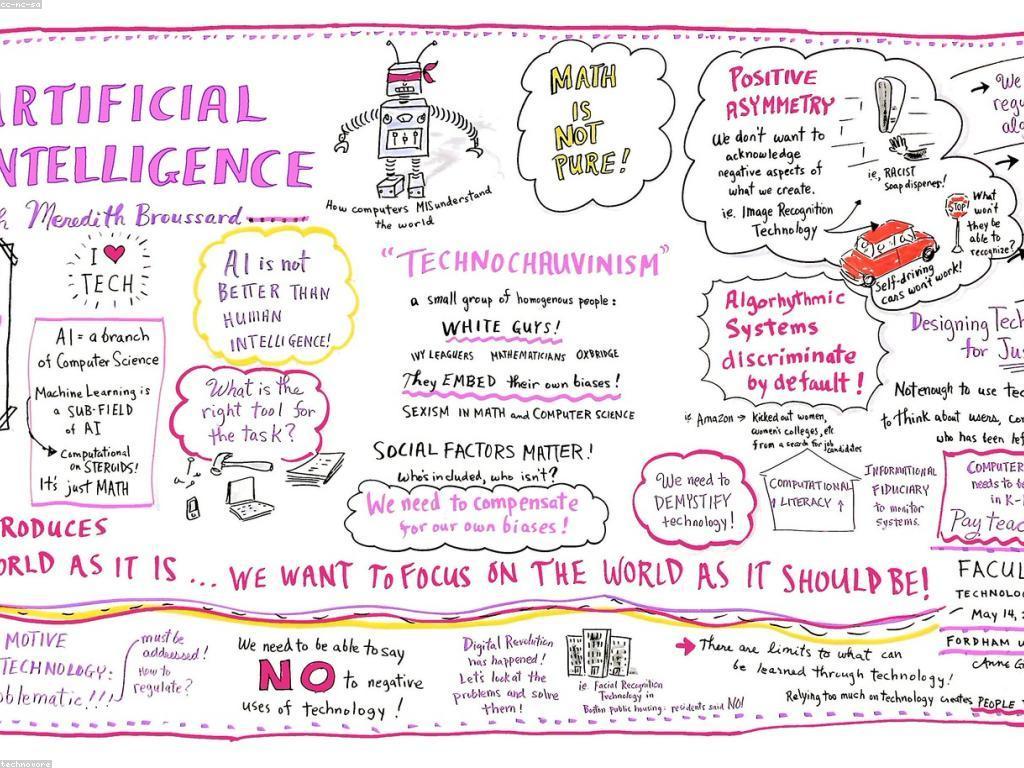 cc-nc-sa
ARTIFICIAL
INTELLIGENCE
h Meredith Broussard
I ♥
TECH
AI = a branch
of Computer Science
Machine Learning is
a SUB-FIELD
of AI
Computational
on STEROIDS!
It's just MATH
AI is not
BETTER THAN
HUMAN
INTELLIGENCE!
What is the
right tool for
the task?
How computers MISunderstand
the world
MATH
IS
NOT
PURE!
"TECHNOCHAUVINISM"
a small group of homogenous people:
WHITE GUYS!
IVY LEAGUERS MATHEMATICIANS OXBRIDGE
They EMBED their own biases!
SEXISM IN MATH and COMPUTER SCIENCE
SOCIAL FACTORS MATTER!
who's included, who isn't?
We need to compensate
for our own biases!
POSITIVE
ASYMMETRY
We don't want to
acknowledge
negative aspects of
what we create.
ie. Image Recognition
Technology
ie, RACIST
soap dispenser!
STOP
What
won't
they be
able to
recognize?
Self-driving
cars won't work!
We
regu
alg
Algorhythmic
Systems
discriminate
by default!
ie Amazon → Kicked out women,
women's colleges, etc
from a search for job
candidates
Designing Tech
for Jus
Not enough to use tec
to think about users, co
who has been left
We need to
DEMYSTIFY
technology!
COMPUTATIONAL
↑ LITERACY ↑
INFORMATIONAL
FIDUCIARY
to monitor
systems.
COMPUTER
needs to be
in K-
Pay teac
RODUCES
ORLD AS IT IS ... WE WANT TO FOCUS ON THE WORLD AS IT SHOULD BE!
FACUL
TECHNOLO
May 14,
FORDHAM U
Anne G
MOTIVE
TECHNOLOGY:
oblematic!!!
must be
addressed!
How to
regulate?
We need to be able to say
NO to negative
uses of technology!
Digital Revolution
has happened!
Let's look at the
problems and solve
them!
ie. Facial Recognition
Technology in
Boston public housing: residents said NO!
There are limits to what can
be learned through technology!
Relying too much on technology creates PEOPLE
technovore